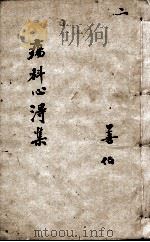 二
瘍科心得集
善伯